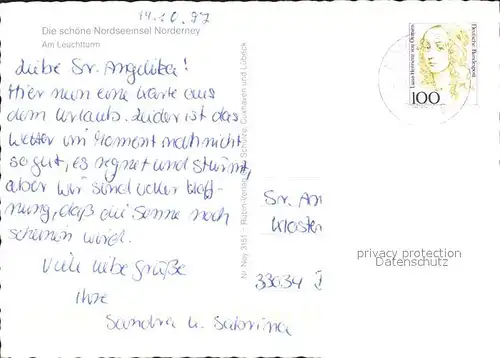 14.10.97
Die schöne Nordseeinsel Norderney
Am Leuchtturm
Liebe Sr. Angelika!
Hier nun eine Karte aus
dem Urlaub. Leider ist das
Wetter im Moment noch nicht
so gut, es regnet und stürmt,
aber wir sind voller Hoff-
nung, daß die Sonne noch
scheinen wird.
Viele liebe Grüße
Ihre
Sandra u. Sabrina
Nr. Ney 3151 - Rubin-Verlag Schöning Cuxhaven und Lübeck
Deutsche Bundespost
Luise Henriette von Oranien
100
Sr. An
Kloster
33034
privacy protection
Datenschutz